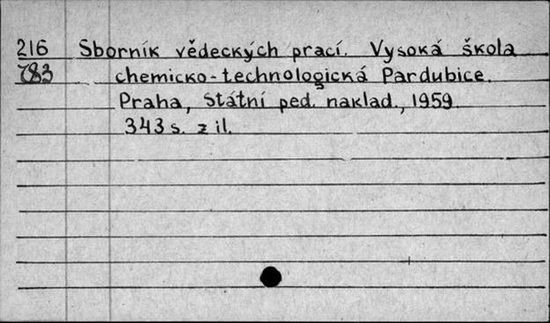 216 Sborník vědeckých prací. Vysoká škola
783 chemicko-technologická Pardubice.
Praha, Státní ped. naklad., 1959
343 s. z il.